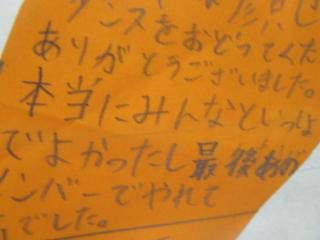 ダンスをおどってくた
ありがとうございました。
本当にみんなといっしょ
でよかったし最後あの
メンバーでやれて
でした。